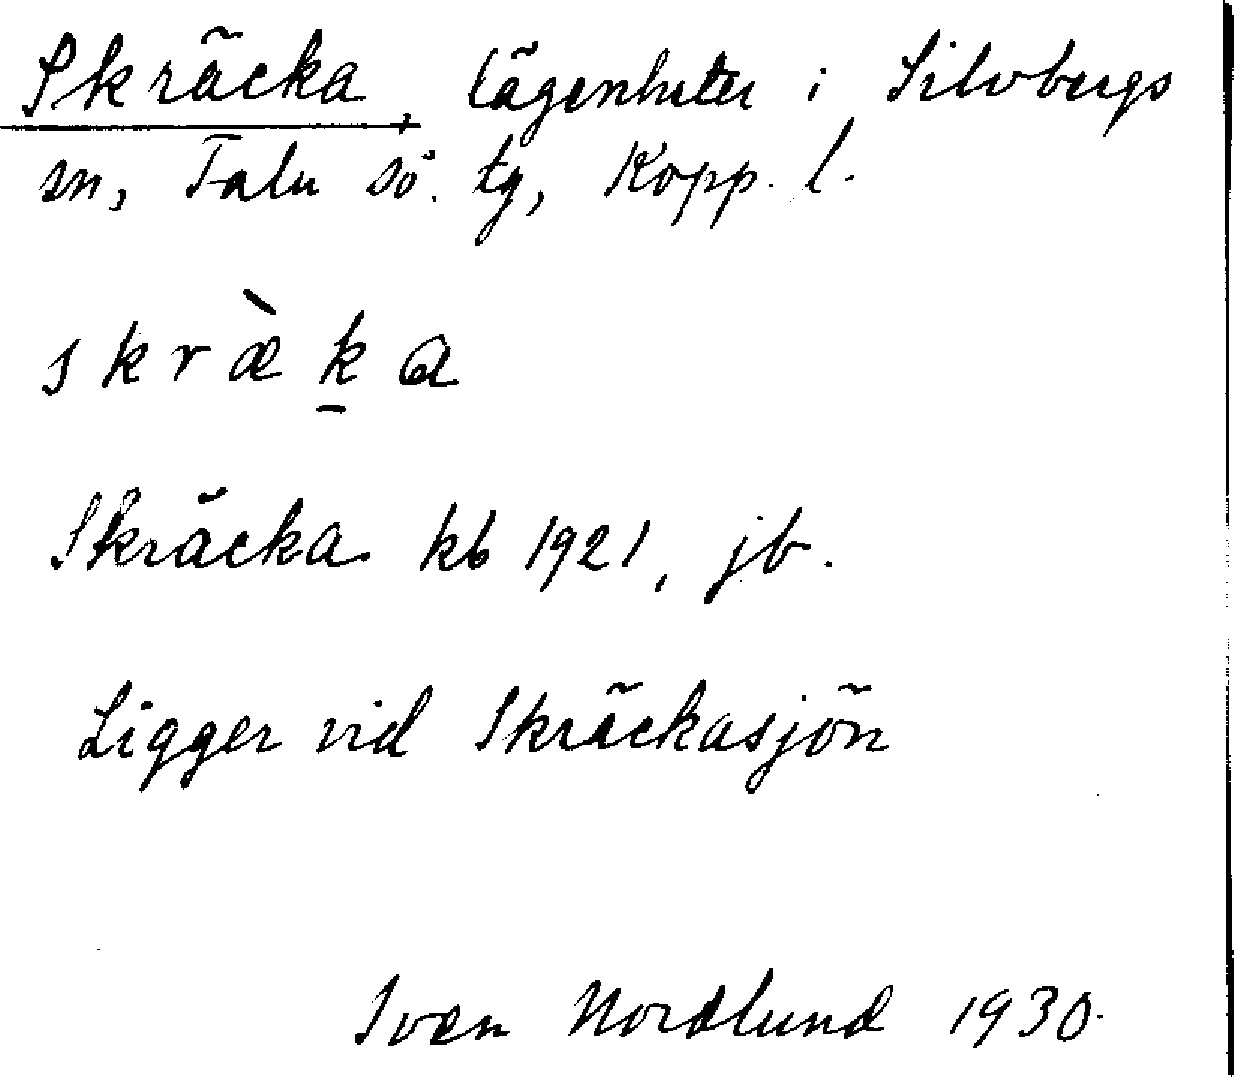 Skräcka, lägenheter i Silvbergs
sn, Falu sö. tg, Kopp. l.
skræ̀k̠a
Skräcka kb 1921, jb.
Ligger vid Skräckasjön
Sven Nordlund 1930.